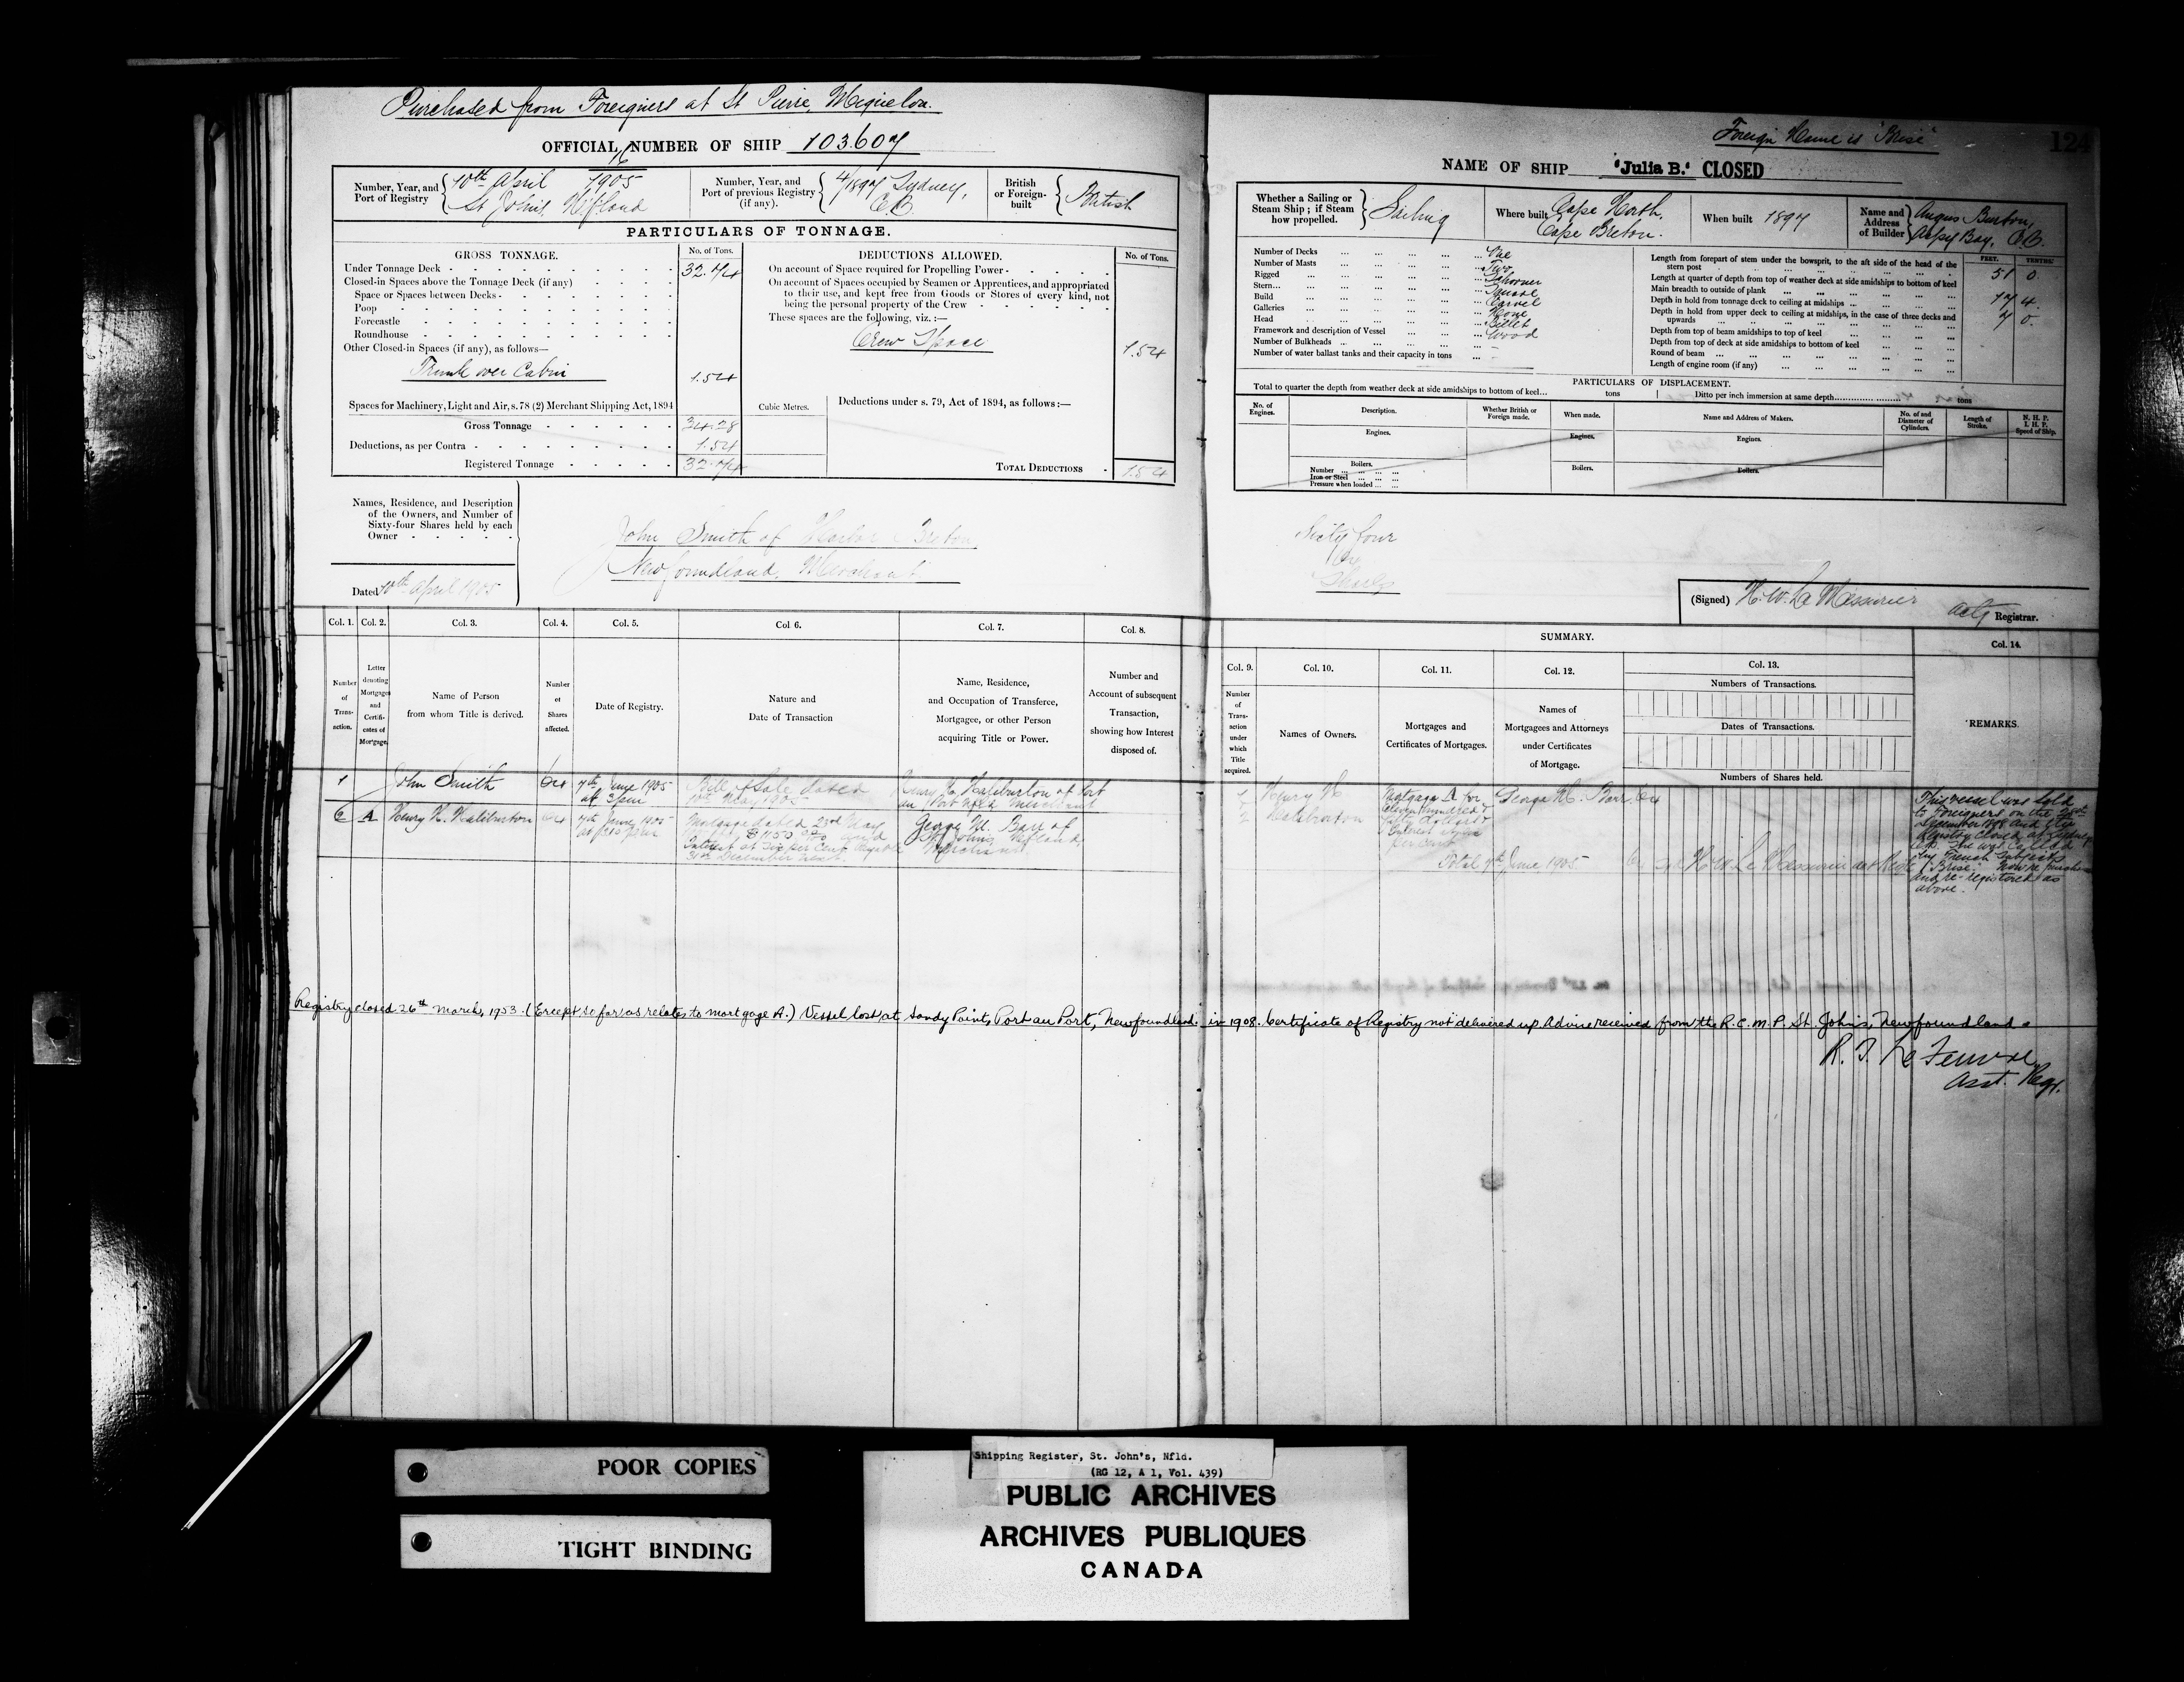 Purchased from Foreigners at St Pierre, Miquelon.
OFFICIAL NUMBER OF SHIP 103.607
Number, Year, and
Port of Registry
16
10th April 1905
St John's, Nfland
Number, Year, and
Port of previous Registry
(if any).
4/1897 Sydney,
C.B.
British
or Foreign-
built
British
PARTICULARS OF TONNAGE.
GROSS TONNAGE.
No. of Tons.
Under Tonnage Deck
32.74
Closed-in Spaces above the Tonnage Deck (if any)
Space or Spaces between Decks
Poop
Forecastle
Roundhouse
Other Closed-in Spaces (if any), as follows—
Trunk over Cabin
1.54
Spaces for Machinery, Light and Air, s. 78 (2) Merchant Shipping Act, 1894
Gross Tonnage
34.28
Deductions, as per Contra
1.54
Registered Tonnage
32.74
Cubic Metres.
DEDUCTIONS ALLOWED.
No. of Tons.
On account of Space required for Propelling Power
On account of Spaces occupied by Seamen or Apprentices, and appropriated
to their use, and kept free from Goods or Stores of every kind, not
being the personal property of the Crew
These spaces are the following, viz. :—
Crew Space
1.54
Deductions under s. 79, Act of 1894, as follows:—
TOTAL DEDUCTIONS
1.54
Names, Residence, and Description
of the Owners, and Number of
Sixty-four Shares held by each
Owner
John Smith of Harbor Breton,
Newfoundland, Merchant.
Dated 10th April 1905
Col. 1. Col. 2. Col. 3. Col. 4. Col. 5. Col. 6. Col. 7. Col. 8.
Number
of
Trans-
action.
Letter
denoting
Mortgages
and
Certifi-
cates of
Mortgage.
Name of Person
from whom Title is derived.
Number
of
Shares
affected.
Date of Registry.
Nature and
Date of Transaction
Name, Residence,
and Occupation of Transferee,
Mortgagee, or other Person
acquiring Title or Power.
Number and
Account of subsequent
Transaction,
showing how Interest
disposed of.
1 John Smith 64
7th June 1905
at 3 pm
Bill of Sale dated
10th May 1905
Henry H. Haliburton of Port
au Port Nfld Merchant
2 A Henry H. Haliburton 64
7th June 1905
at 3.10 pm
Mortgage dated 23rd May
$1150.00 and
Interest at six per Cent payable
31st December next.
George M. Barr of
St Johns, Nfland,
Merchant.
Registry closed 26th March, 1953. (Except so far as relates to mortgage A.) Vessel lost at Sandy Point, Port au Port, Newfoundland. in 1908. Certificate of Registry not delivered up. Advice received from the R.C.M.P. St. John's, Newfoundland.
R. T. Le Feuvre
Asst. Regr.
Foreign Name is "Brise"
124
NAME OF SHIP "Julia B." CLOSED
Whether a Sailing or
Steam Ship ; if Steam
how propelled.
Sailing
Where built
Cape North,
Cape Breton.
When built 1897
Name and
Address
of Builder
Angus Burton,
Aspy Bay, C.B.
Number of Decks One
Number of Masts Two
Rigged Schooner
Stern Square
Build Carvel
Galleries None
Head Billet
Framework and description of Vessel Wood
Number of Bulkheads
Number of water ballast tanks and their capacity in tons
FEET. TENTHS.
Length from forepart of stem under the bowsprit, to the aft side of the head of the
stern post
51 0
Length at quarter of depth from top of weather deck at side amidships to bottom of keel
Main breadth to outside of plank
17 4
Depth in hold from tonnage deck to ceiling at midships
7 0
Depth in hold from upper deck to ceiling at midships, in the case of three decks and
upwards
Depth from top of beam amidships to top of keel
Depth from top of deck at side amidships to bottom of keel
Round of beam
Length of engine room (if any)
PARTICULARS OF DISPLACEMENT.
Total to quarter the depth from weather deck at side amidships to bottom of keel... tons
Ditto per inch immersion at same depth tons
No. of
Engines.
Description.
Whether British or
Foreign made.
When made.
Name and Address of Makers.
No. of and
Diameter of
Cylinders.
Length of
Stroke.
N. H. P.
I. H. P.
Speed of Ship.
Engines.
Engines.
Engines.
Boilers.
Number
Iron or Steel
Pressure when loaded
Boilers.
Boilers.
Sixty four
64
Shares
(Signed) H. W. Le Messurier
actg Registrar.
SUMMARY.
Col. 9. Col. 10. Col. 11. Col. 12. Col. 13. Col. 14.
Number
of
Trans-
action
under
which
Title
acquired.
Names of Owners.
Mortgages and
Certificates of Mortgages.
Names of
Mortgagees and Attorneys
under Certificates
of Mortgage.
Numbers of Transactions.
Dates of Transactions.
Numbers of Shares held.
REMARKS.
1 Henry H
2 Haliburton
Mortgage A for
eleven hundred &
fifty dollars &
Interest
per cent
George M. Barr 64
Total 7th June 1905
H W Le Messurier act Regr
This vessel was sold
to Foreigners on the
December 1898 and the
Registry closed at Sydney
C.B. She was called
by French Subjects
"Brise".
and re-registered as
above.
POOR COPIES
TIGHT BINDING
Shipping Register, St. John's, Nfld.
(RG 12, A 1, Vol. 439)
PUBLIC ARCHIVES
ARCHIVES PUBLIQUES
CANADA